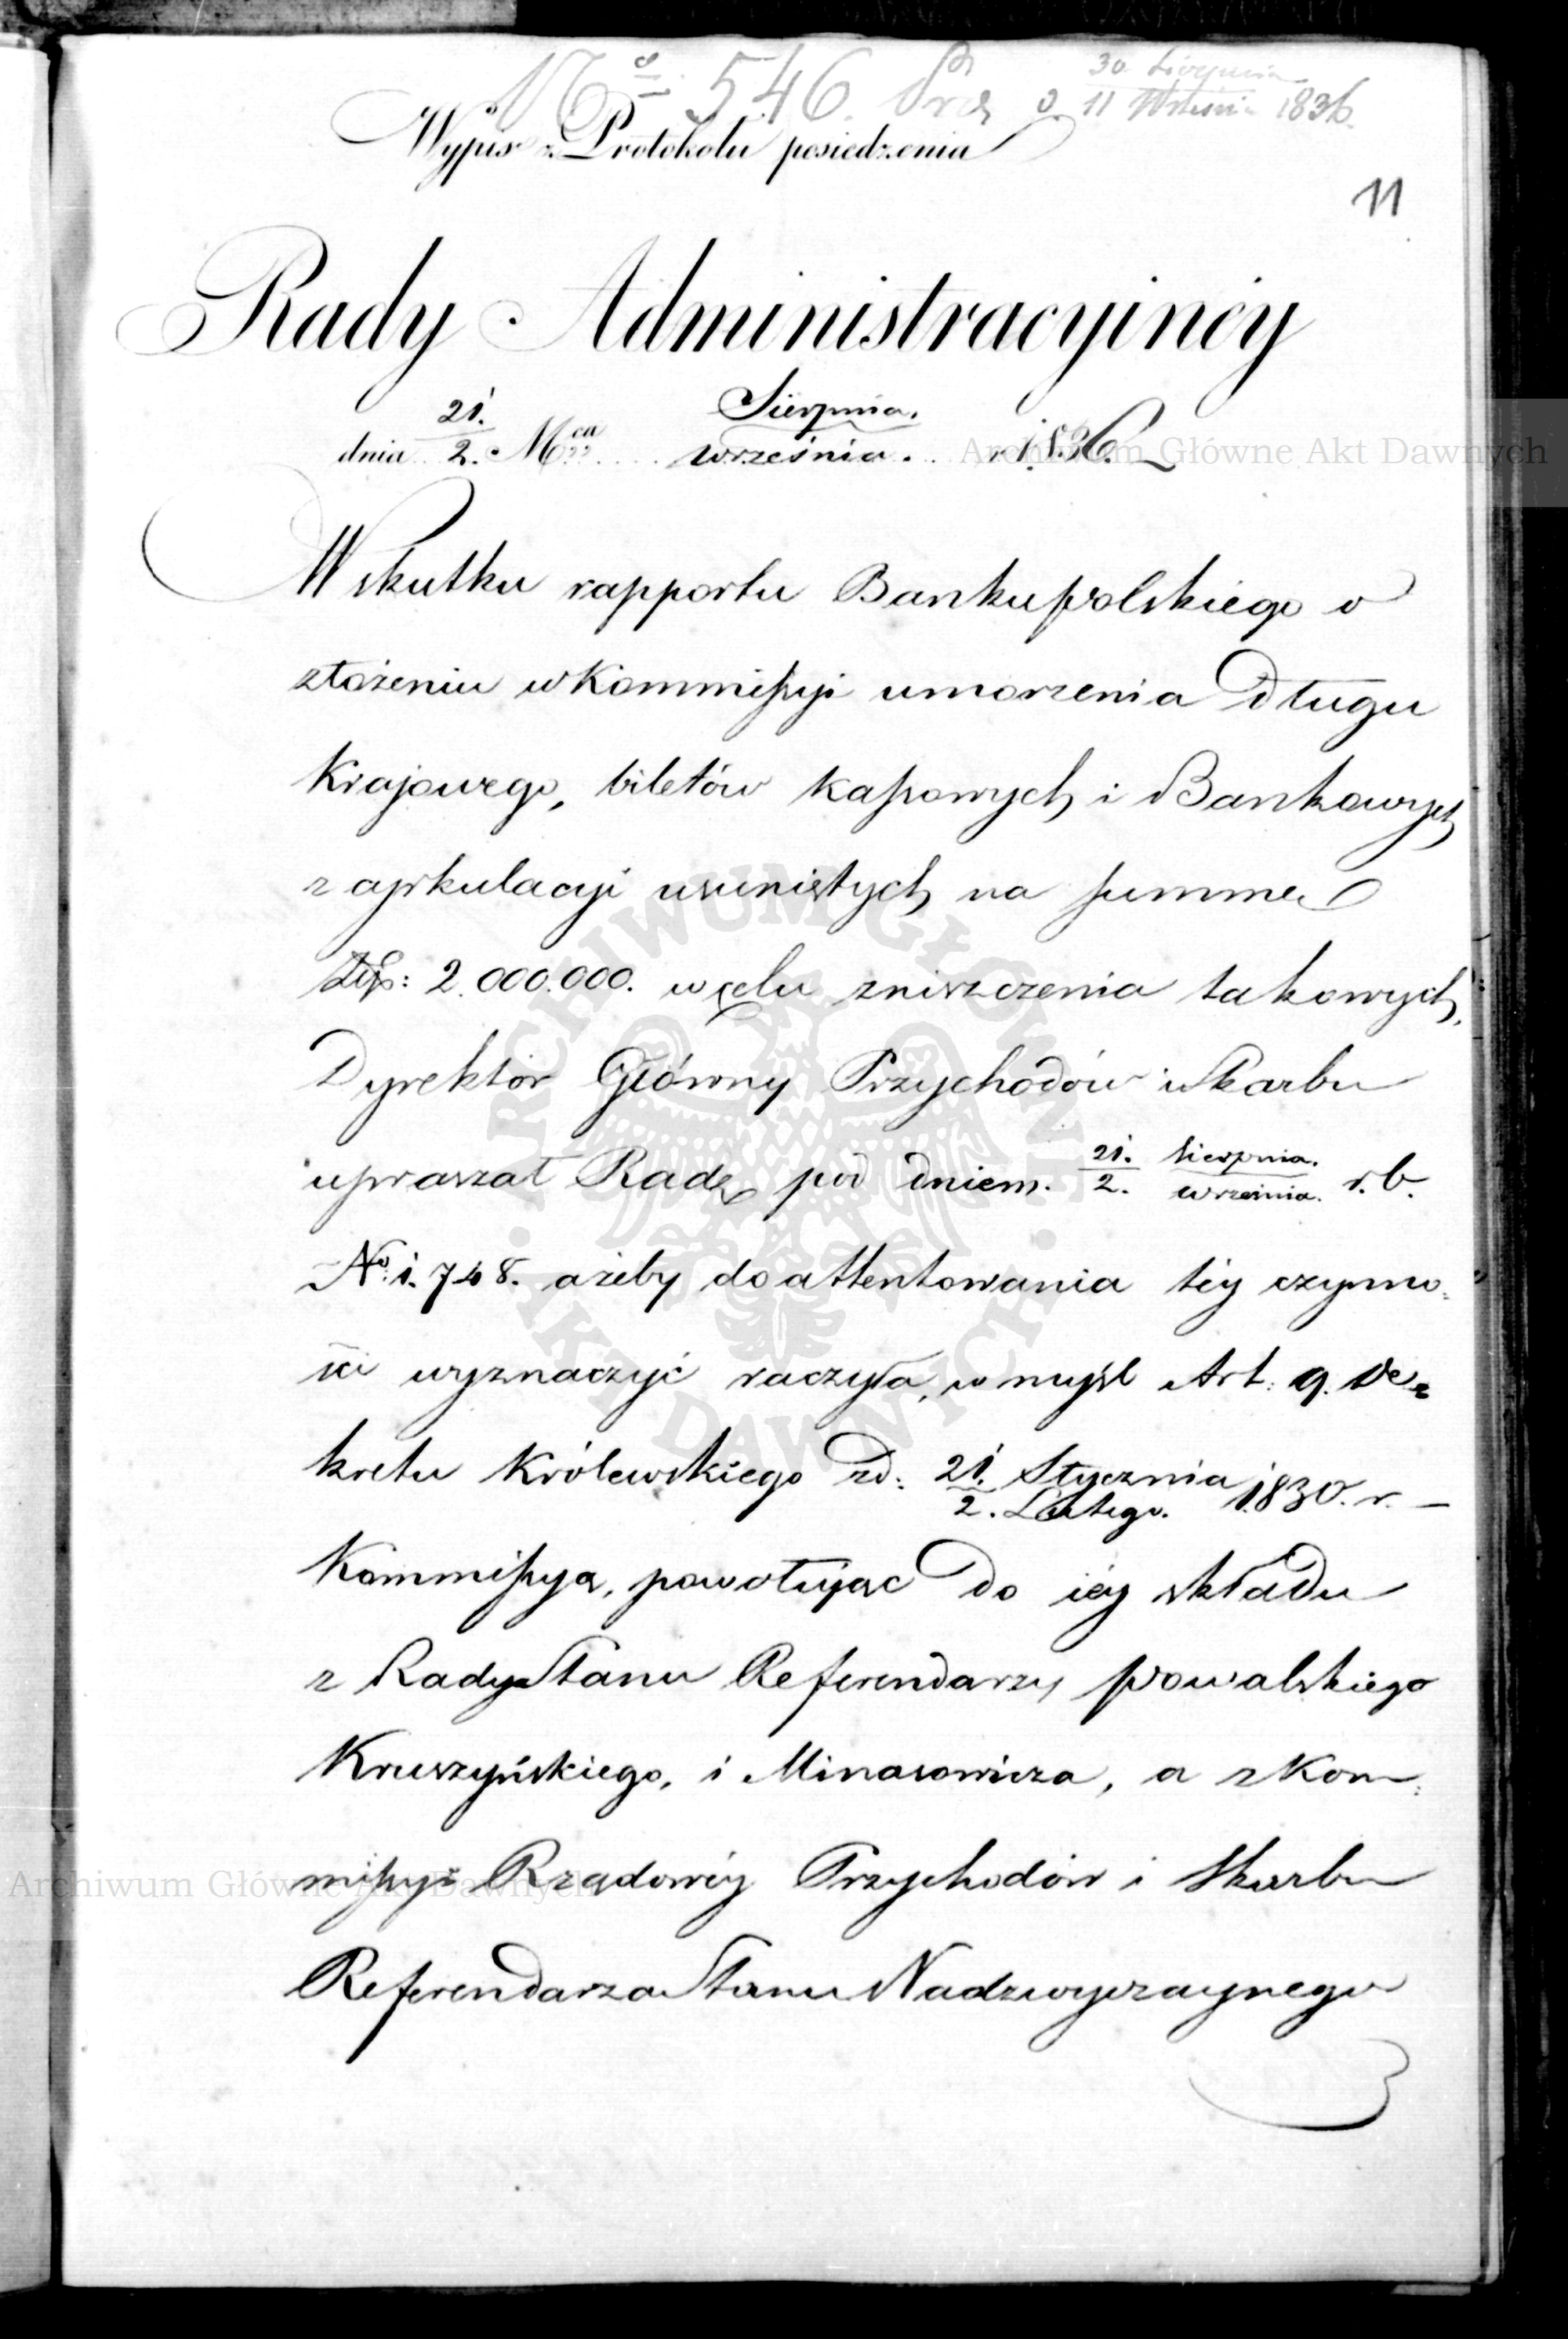 Nº 546. Prd d. 30 Sierpnia / 11 Wrześni 1836.
Wypis z Protokołu posiedzenia
11
Rady Administracyinéy
dnia 21./2. Mca Sierpnia./września. 1836.
Archiwum Główne Akt Dawnych
W skutku rapportu Banku polskiego o
złożeniu w Kommissyi umorzenia Długu
Krajowego, biletów kassowych i Bankowych
z cyrkulacyi usuniętych na summę
Złp: 2.000.000. w celu zniszczenia takowych,
Dyrektor Główny Przychodów i Skarbu
upraszał Radę pod dniem 21./2. Sierpnia./września. r.b.
No: 1.748. ażeby do attentowania téy czynno=
ści wyznaczyć raczyła, w myśl Art: 9. De=
kretu Królewskiego zd: 21./2. Stycznia/Lutego. 1830. r. –
Kommissyą, powołując Do iéy składu
z Rady Stanu Referendarzy Powalskiego
Kruszyńskiego, i Minasowicza, a z Kom=
missyi Rządowéy Przychodów i Skarbu
Archiwum Główne Akt Dawnych
Referendarza Stanu Nadzwyczaynego
ARCHIWUM GŁÓWNE · AKT DAWNYCH ·